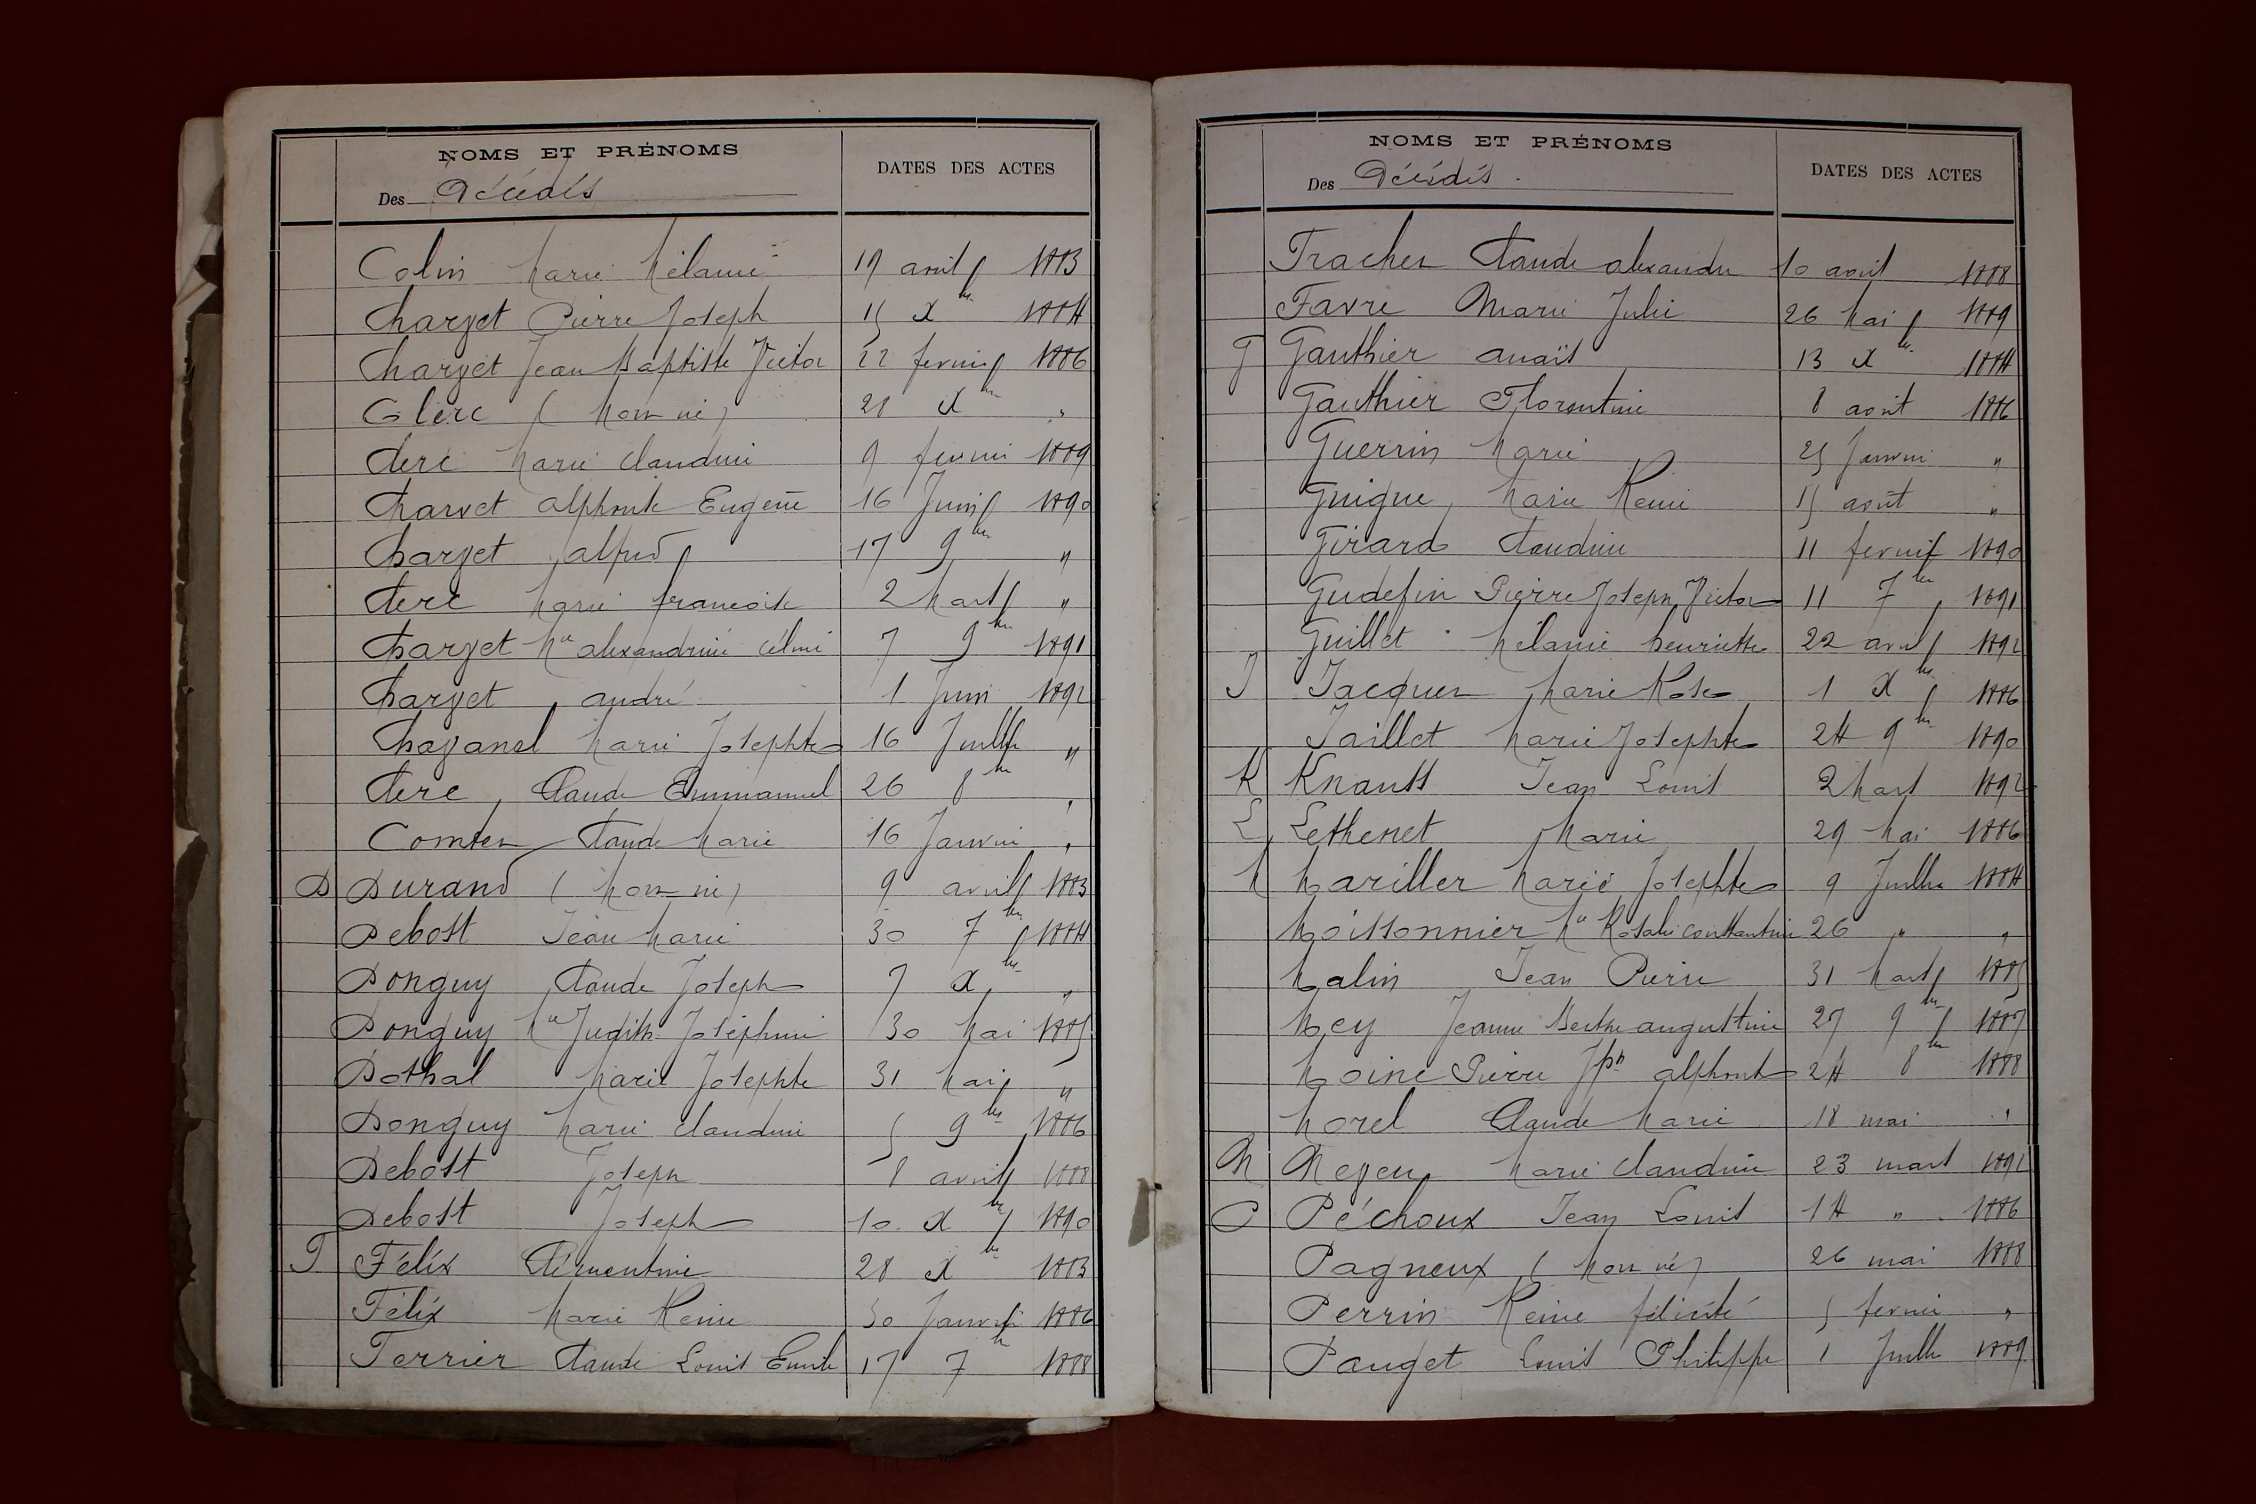 NOMS ET PRÉNOMS
DATES DES ACTES
Des Décédés
Colin Marie Mélanie 19 avril 1883
Charget Pierre Joseph 15 Xbre 1884
Charget Jean Baptiste Victor 22 fevrier 1886
Clerc (mort né) 21 Xbre "
Clerc Marie Claudine 9 fevrier 1889
Charvet Alphonse Eugène 16 Juin 1890
Charget Alfred 17 9bre "
Clerc Marie françoise 2 Mars "
Charget Mie Alexandrine Célinie 7 9bre 1891
Charget André 1 Juin 1892
Chavanel Marie Josephte 16 Juillet "
Clerc Claude Emmanuel 26 8bre "
Comter Claude Marie 16 Janvier "
D Durand (mort né) 9 avril 1883
Debost Jean Marie 30 7bre 1884
Donguy Claude Joseph 7 Xbre "
Donguy Mie Judith Joséphine 30 Mai 1885
Dothal Marie Josephte 31 Mai "
Donguy Marie Claudine 5 9bre 1886
Debost Joseph 8 avril 1888
Debost Joseph 10 Xbre 1890
F Félix Clémentine 28 Xbre 1883
Félix Marie Reine 30 Janvier 1886
Ferrier Claude Louis Emile 17 7bre 1888
NOMS ET PRÉNOMS
DATES DES ACTES
Des Décédés.
Fracher Claude Alexandre 10 avril 1888
Favre Marie Julie 26 Mai 1889
G Gauthier Anaïs 13 Xbre 1884
Gauthier Florentine 8 août 1886
Guerrin Marie 25 Janvier "
Guigue Marie Reine 15 août "
Girard Claudine 11 fevrier 1890
Gudefin Pierre Joseph Victor 11 7bre 1891
Guillet Mélanie henriette 22 avril 1892
J Jacquer Marie Rose 1 Xbre 1886
Jaillet Marie Josephte 24 9bre 1890
K Knauss Jean Louis 2 Mars 1892
L Lethenet Marie 29 Mai 1886
M Mariller Marie Josephte 9 Juillet 1884
Moissonnier Mie Rosalie Constantine 26 " "
Malin Jean Pierre 31 Mars 1885
Mey Jeanne Berthe Augustine 27 9bre 1887
Moine Pierre Jph Alphonse 24 8bre 1888
Morel Claude Marie 18 mai "
N Neyeu Marie Claudine 23 mars 1892
P Péchoux Jean Louis 14 " 1886
Pagneux (Mort né) 26 mai 1888
Perrin Reine félicité 5 fevrier "
Pauget Louis Philippe 1 Juillet 1889